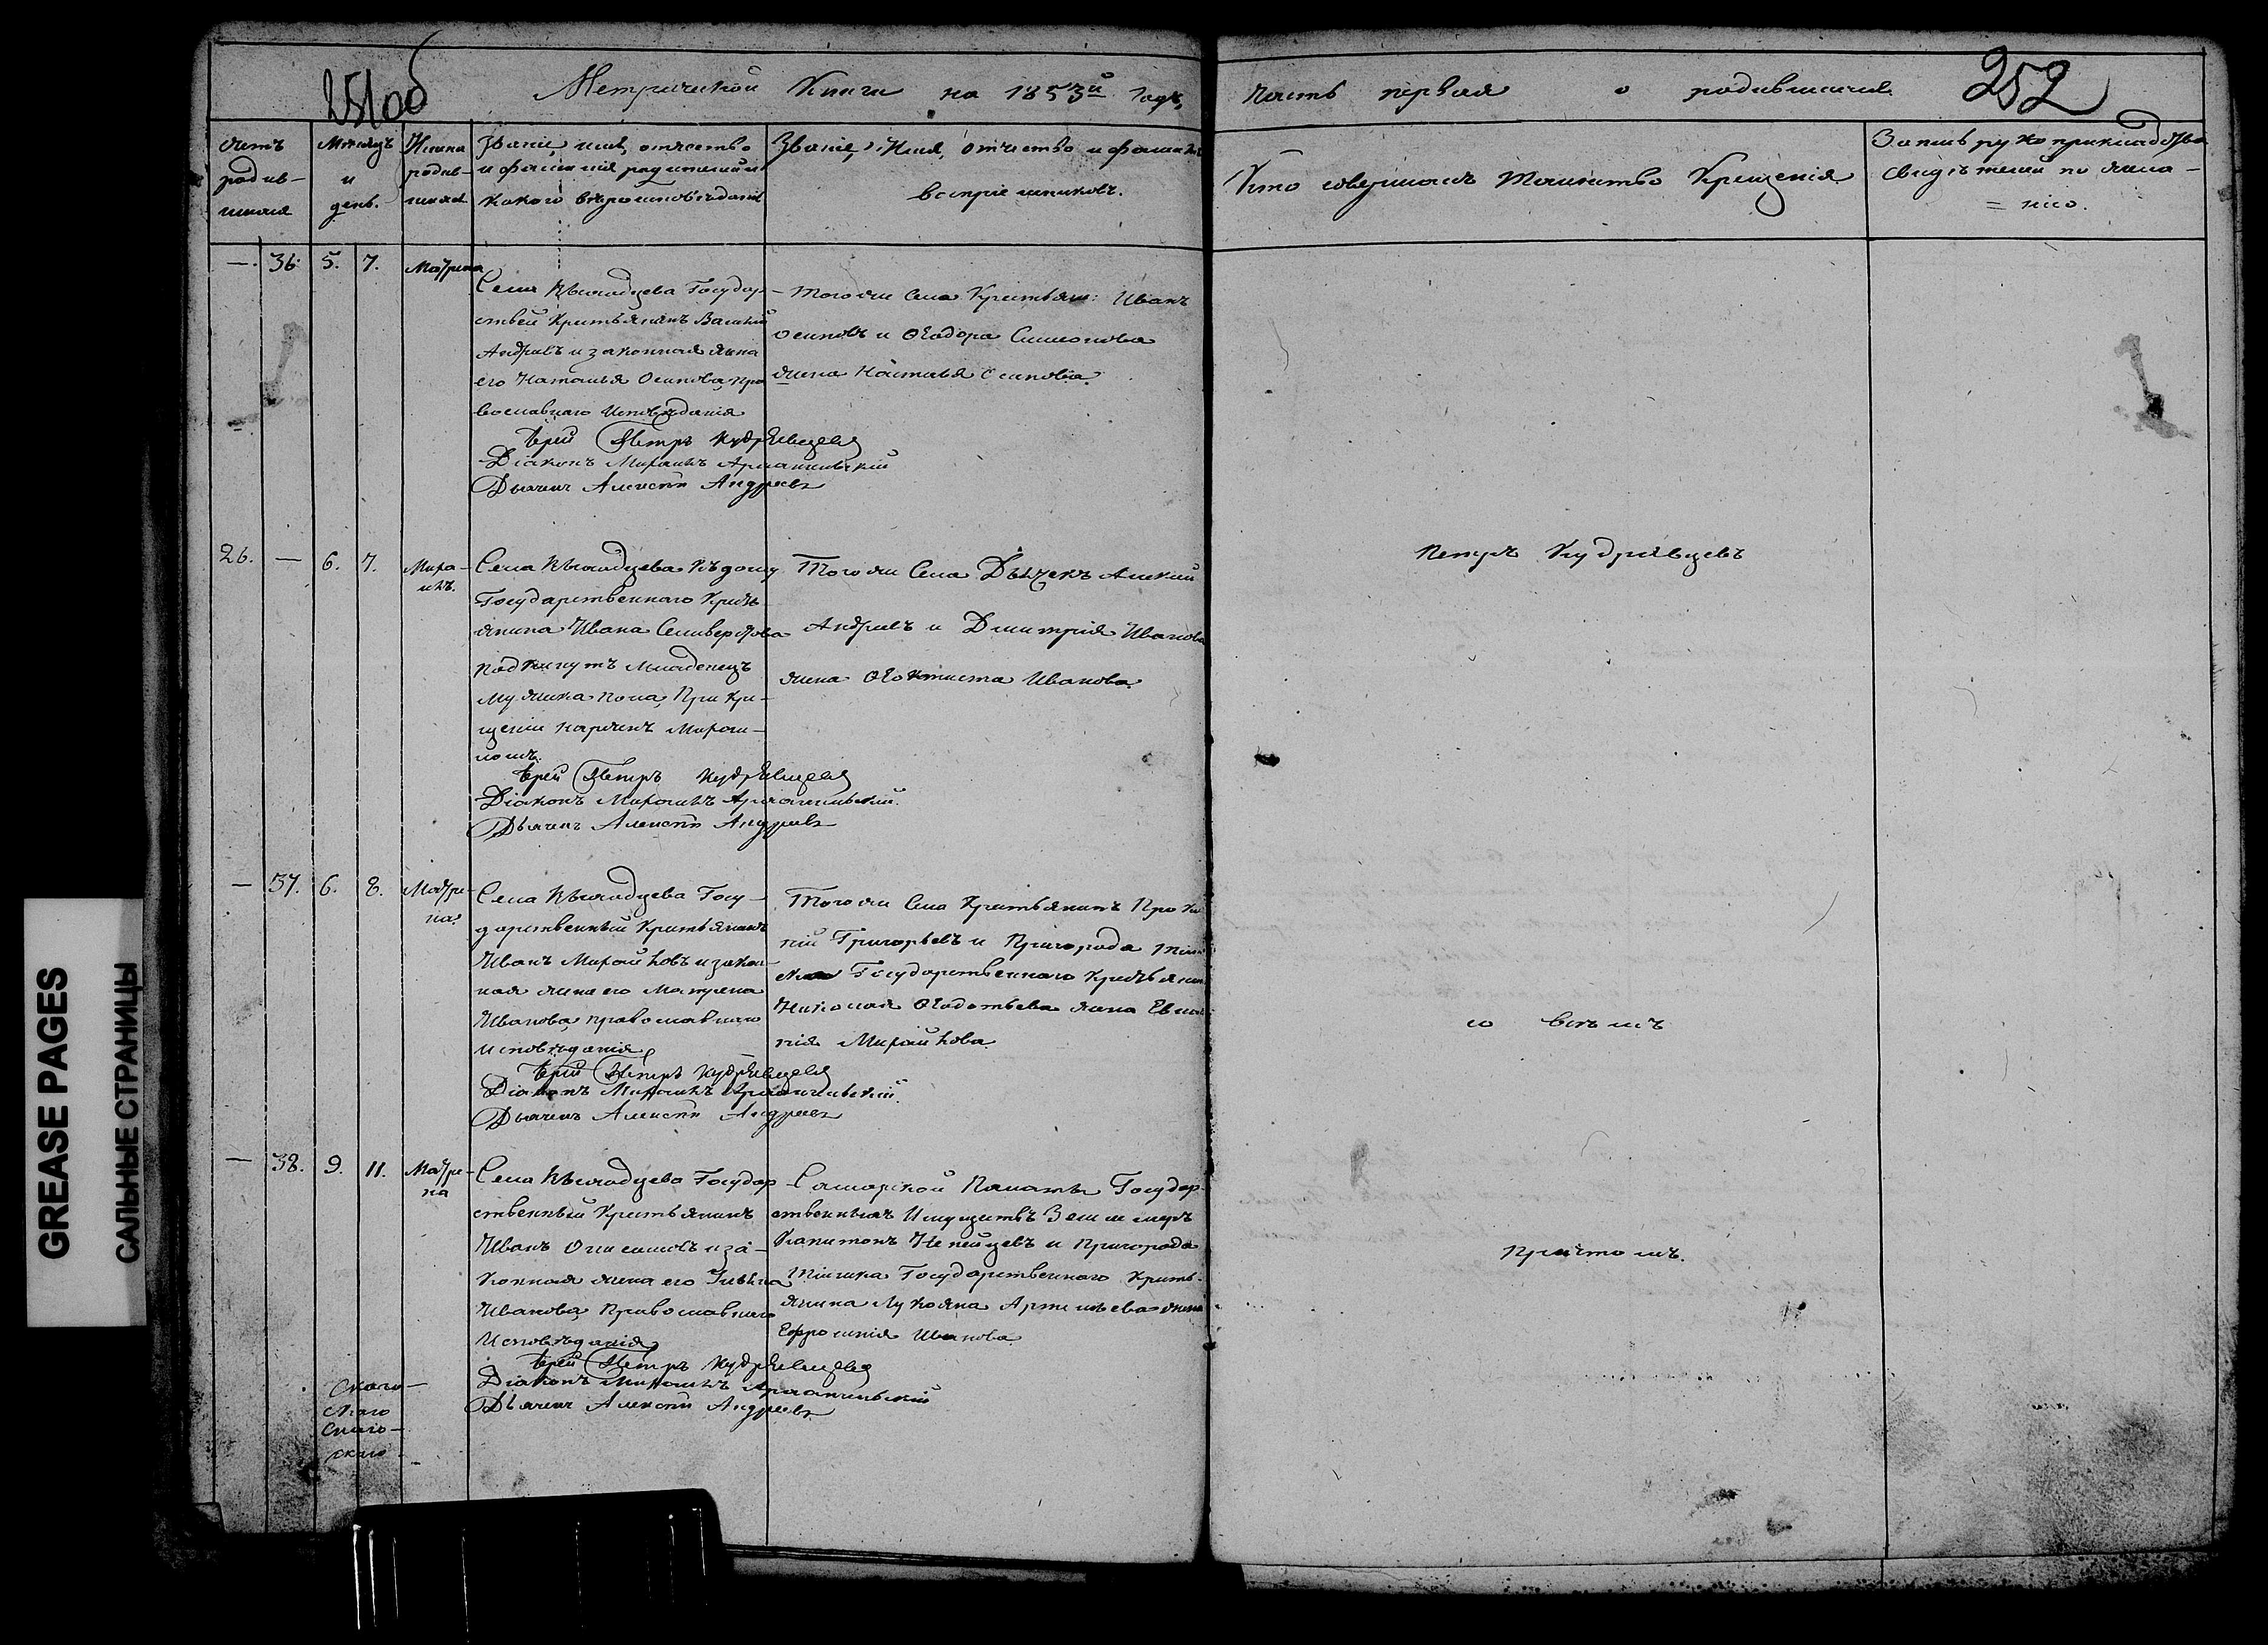 251об
Метрической Книги на 1853й Годъ,
часть первая о родившихся.
252
Счетъ родив-шихся
Мѣсяцъ и день.
Имена родив-шихся
Званіе, имя, отчество
и фамилія родителей и
какого вѣроисповѣданія
Званіе, Имя, отчество и фамилія
воспріемниковъ.
Кто совершалъ Таинство Крещенія
Запись рукоприкладства
свидѣтелей по жела-
= нію.
—. 36. 5. 7. Матрена
Села Государ-
ствен Крестьянинъ Василій
Андреевъ и законная жена
его Наталья Осипова, пра
вославнаго Исповѣданія
Іерей Петръ Кудрявцевъ
Діаконъ Михаилъ Архангельскій
Дьячекъ Алексѣй Андреевъ
Того же Села Крестьян: Иванъ
Осиповъ и Ѳеодора Симеонова
жена Наталья Осипова.
26. — 6. 7. Миха-
илъ.
Села Къ дому
Государственнаго Кресть
янина Ивана Селиверстова
подкинутъ Младенецъ
Мужеска пола, При Кре-
щеніи нареченъ Михаи-
ломъ.
Іерей Петръ Кудрявцевъ
Діаконъ Михаилъ Архангельскій.
Дьячекъ Алексѣй Андреевъ
Того же Села Дьячекъ Алексій
Андреевъ и Димитрія Иванова
жена Ѳеоктиста Иванова.
Петръ Кудрявцевъ
— 37. 6. 8. Матре-
на.
Села Госу-
дарственный Крестьянинъ
Иванъ Михайловъ и закон-
ная жена его Матрена
Иванова, православнаго
исповѣданія,
Іерей Петръ Кудрявцевъ
Діаконъ Михаилъ Архангельскій.
Дьячекъ Алексѣй Андреевъ
Того же Села Крестьянинъ Проко
пій Григорьевъ и Пригорода
Государственнаго Крестьянин
Николая Ѳедотьева жена
Михайлова.
со всѣмъ
— 38. 9. 11. Матре-
на
Села Государ
ственный Крестьянинъ
Иванъ Онисимовъ и за-
конная жена его
Иванова, Православнаго
Исповѣданія,
Іерей Петръ Кудрявцевъ
Діаконъ Михаилъ Архангельскій
Дьячекъ Алексѣй Андреевъ
Самарской Палаты Государ-
ственныхъ Имуществъ Землемѣръ
Капитонъ и Пригорода
Государственнаго Кресть-
янина Лукояна Артемьева жена
Ефросинія Иванова
Причтомъ.
GREASE PAGES
САЛЬНЫЕ СТРАНИЦЫ